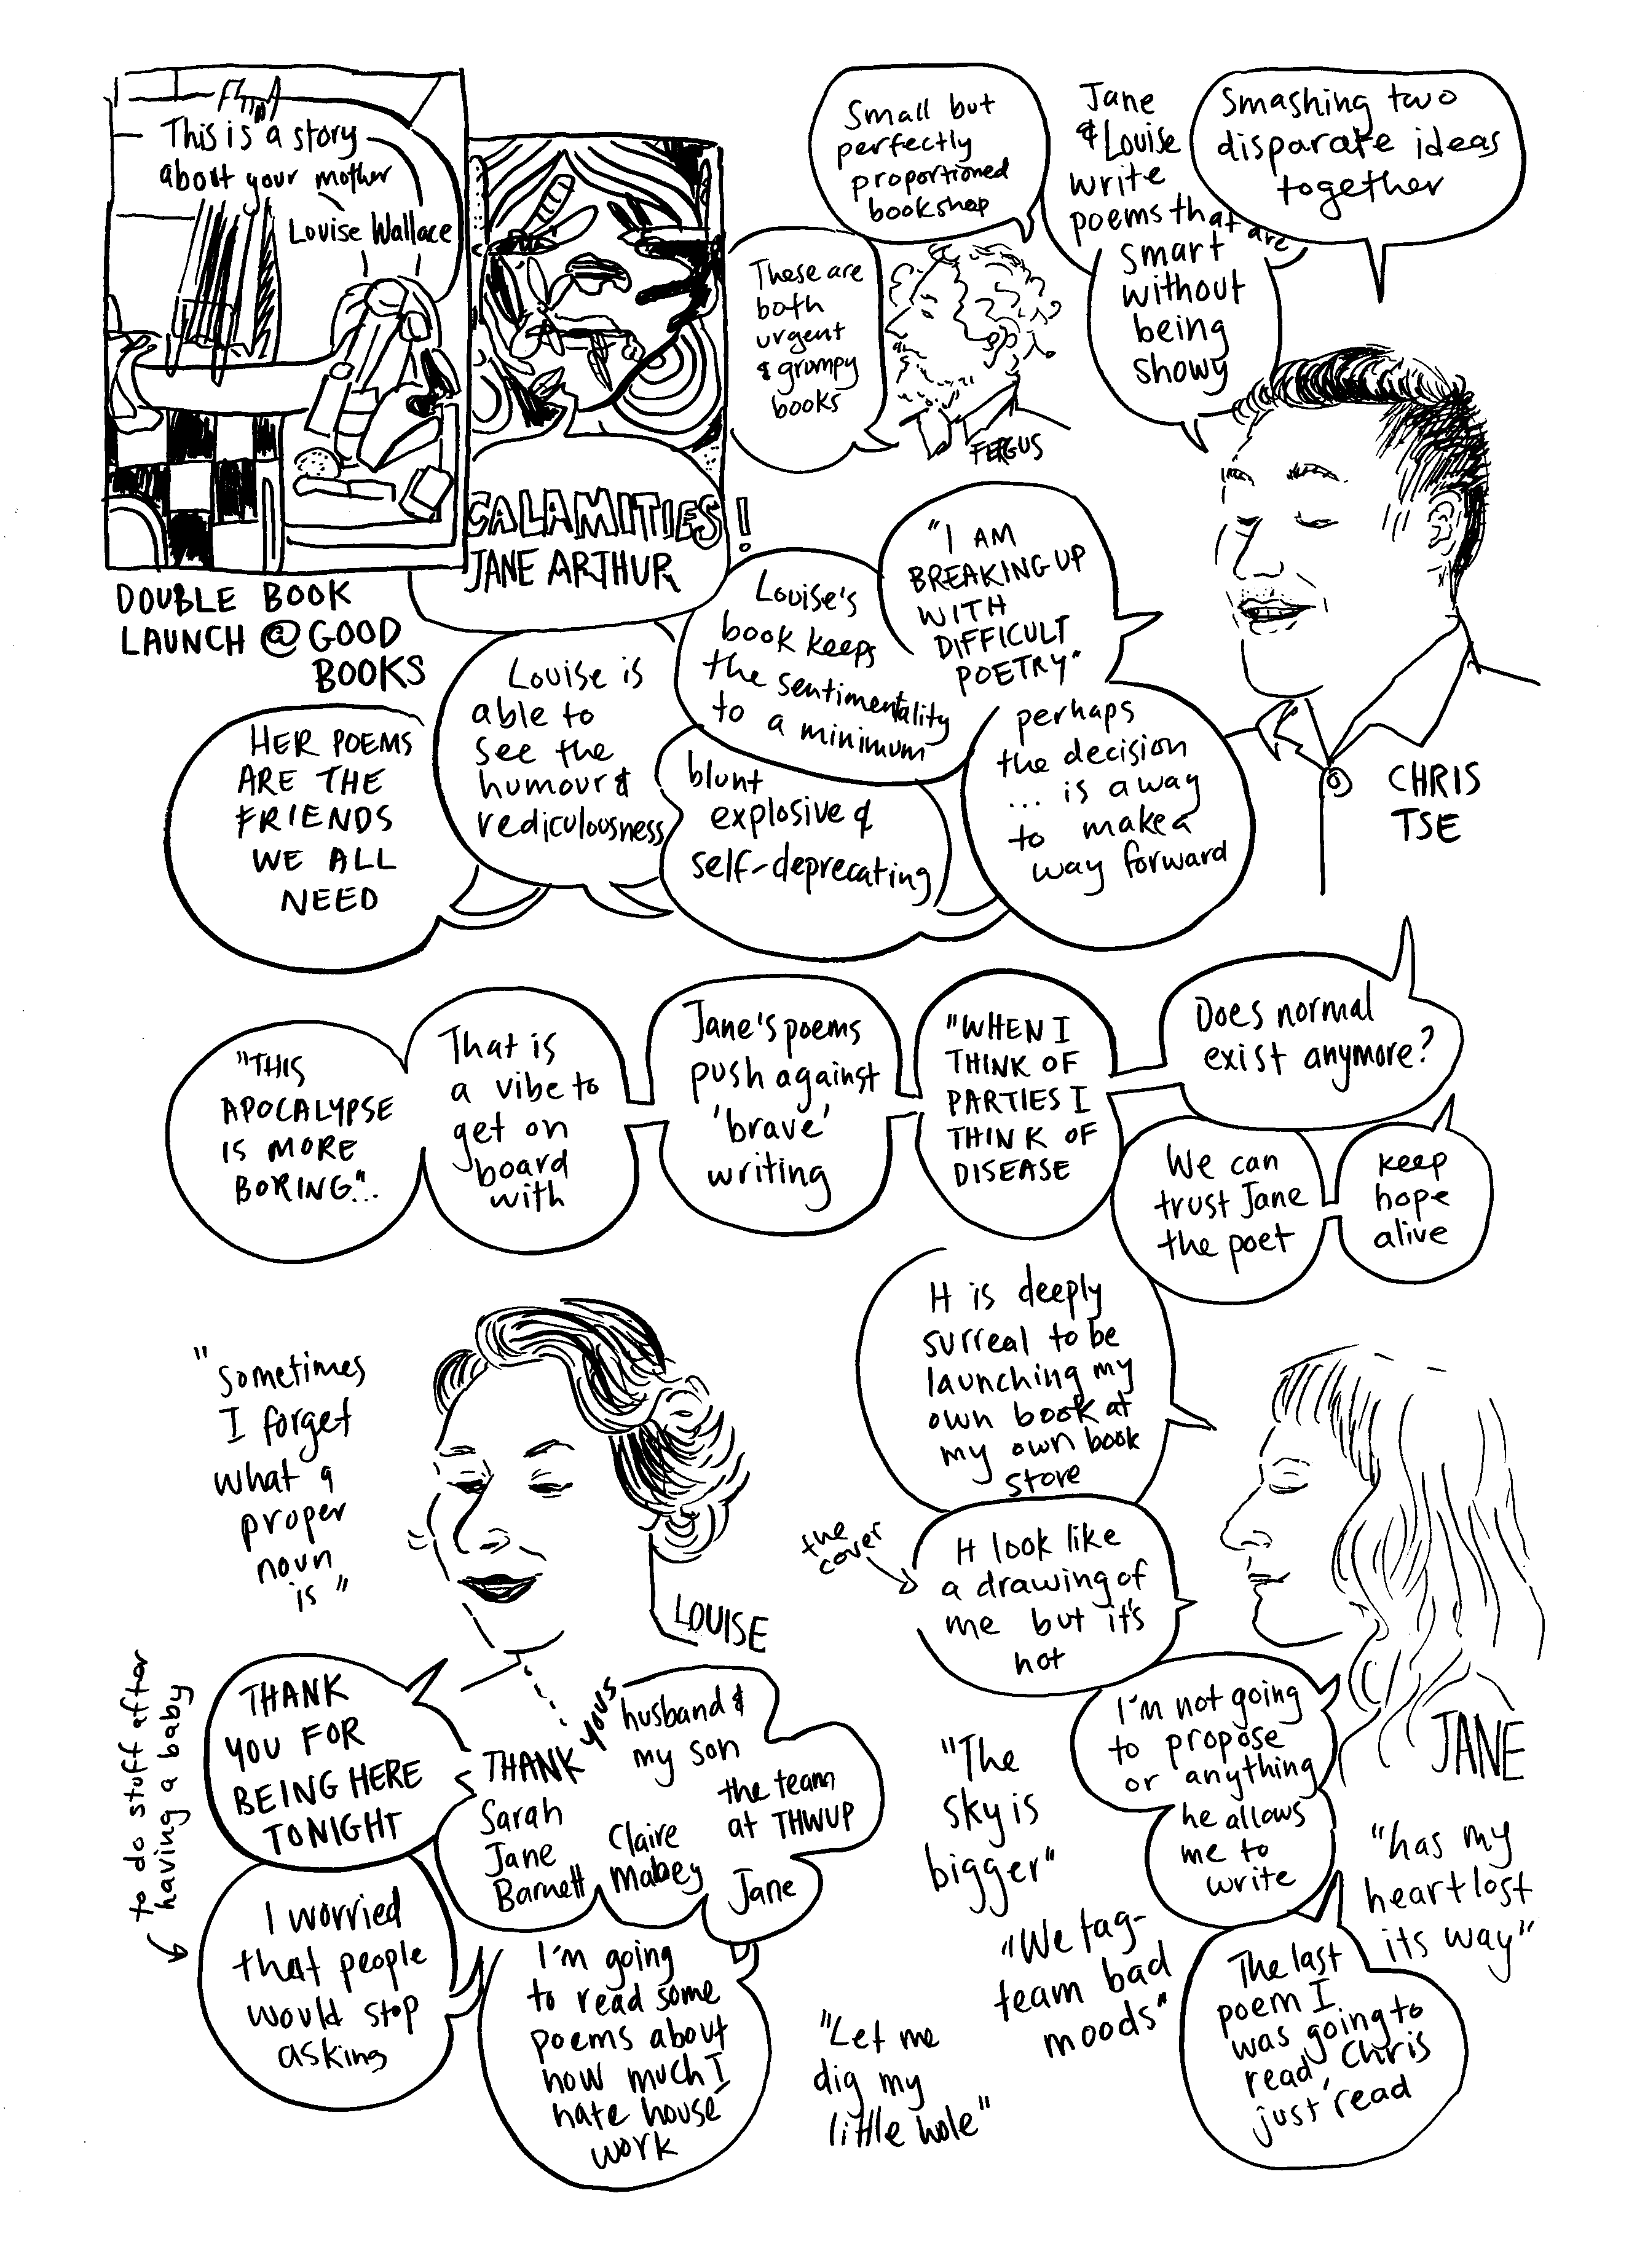 This is a story
about your mother
Louise Wallace
CALAMITIES!
JANE ARTHUR
DOUBLE BOOK
LAUNCH @ GOOD
BOOKS
Small but
perfectly
proportioned
bookshop
These are
both
urgent
& grumpy
books
FERGUS
Jane
& Louise
write
poems that are
smart
without
being
showy
Smashing two
disparate ideas
together
CHRIS
TSE
"I AM
BREAKING UP
WITH
DIFFICULT
POETRY"
perhaps
the decision
... is a way
to make a
way forward
Louise's
book keeps
the sentimentality
to a minimum
blunt
explosive &
self-deprecating
Louise is
able to
see the
humour &
rediculousness
HER POEMS
ARE THE
FRIENDS
WE ALL
NEED
Does normal
exist anymore?
"WHEN I
THINK OF
PARTIES I
THINK OF
DISEASE
Jane's poems
push against
'brave'
writing
That is
a vibe to
get on
board
with
"THIS
APOCALYPSE
IS MORE
BORING"...
We can
trust Jane
the poet
keep
hope
alive
"Sometimes
I forget
what a
proper
noun
is"
LOUISE
THANK
YOU FOR
BEING HERE
TONIGHT
THANK YOUS
husband &
my son
the team
at THWUP
Sarah
Jane
Barnett
Claire
Mabey
Jane
to do stuff after
having a baby
I worried
that people
would stop
asking
I'm going
to read some
poems about
how much I
hate house
work
It is deeply
surreal to be
launching my
own book at
my own book
store
the
cover
It look like
a drawing of
me but it's
not
JANE
I'm not going
to propose
or anything
he allows
me to
write
"The
sky is
bigger"
"has my
heart lost
its way"
"We tag-
team bad
moods"
"Let me
dig my
little hole"
The last
poem I
was going to
read, Chris
just read